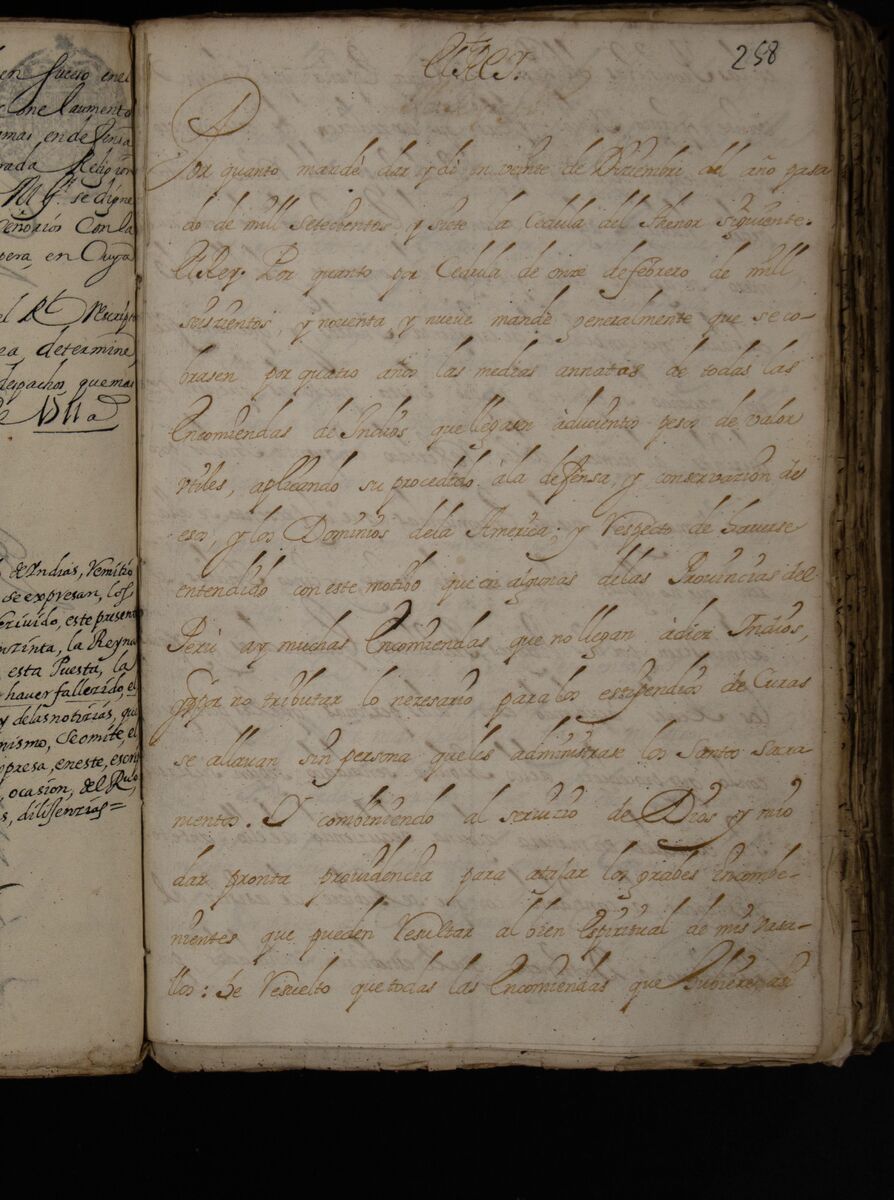 en suceso en el
one laumento
amas, en defensa
rada Religion
M.g.d se digne
eñorios Con la
pera, en Cuya
el Rl. Rescripto
ea, determine,
despachos, que mas
de 1711 a.s
de Indias, Remitio
se expresan, los,
seriuido, este present
nrinta, la Reyna
esta Puesta, la
hauer fallezido, el
y delas notizias, que
mismo, Se omite, el
presa, en este, escri
ocasion, del R.l
s, dilijenzias =
258
El Rey.
Por quanto mandè dar y di en veinte de Diziembre del año pasa
do de mill setecientos y siete la Cedula del thenor siguiente.
El Rey. Por quanto por Cedula de onze de febrero de mill
seiscientos, y noventa y nueve mandè generalmente que se co-
brasen por quatro años las medias annatas de todas las
Encomiendas de Indios, que llegasen à ducientos pesos de valor
vtiles, aplicando su procedido à la defensa, y conservazion de
esos, y los Dominios dela America; y Respecto de haverse
entendido con este motibo que en algunas de las Provincias del
Perù ay muchas Encomiendas que no llegan à diez Indios,
y por no tributar lo nezesario para los estipendios de Curas
se allauan sin persona que les administrase los Santos Sacra
mentos. Y combiniendo al seruizio de Dios y mio
dar pronta providencia para atajar los grabes incombe-
nientes que pueden Resultar al bien Espiritual de mis vasa-
llos: he Resuelto que todas las Encomiendas que hubiere asi